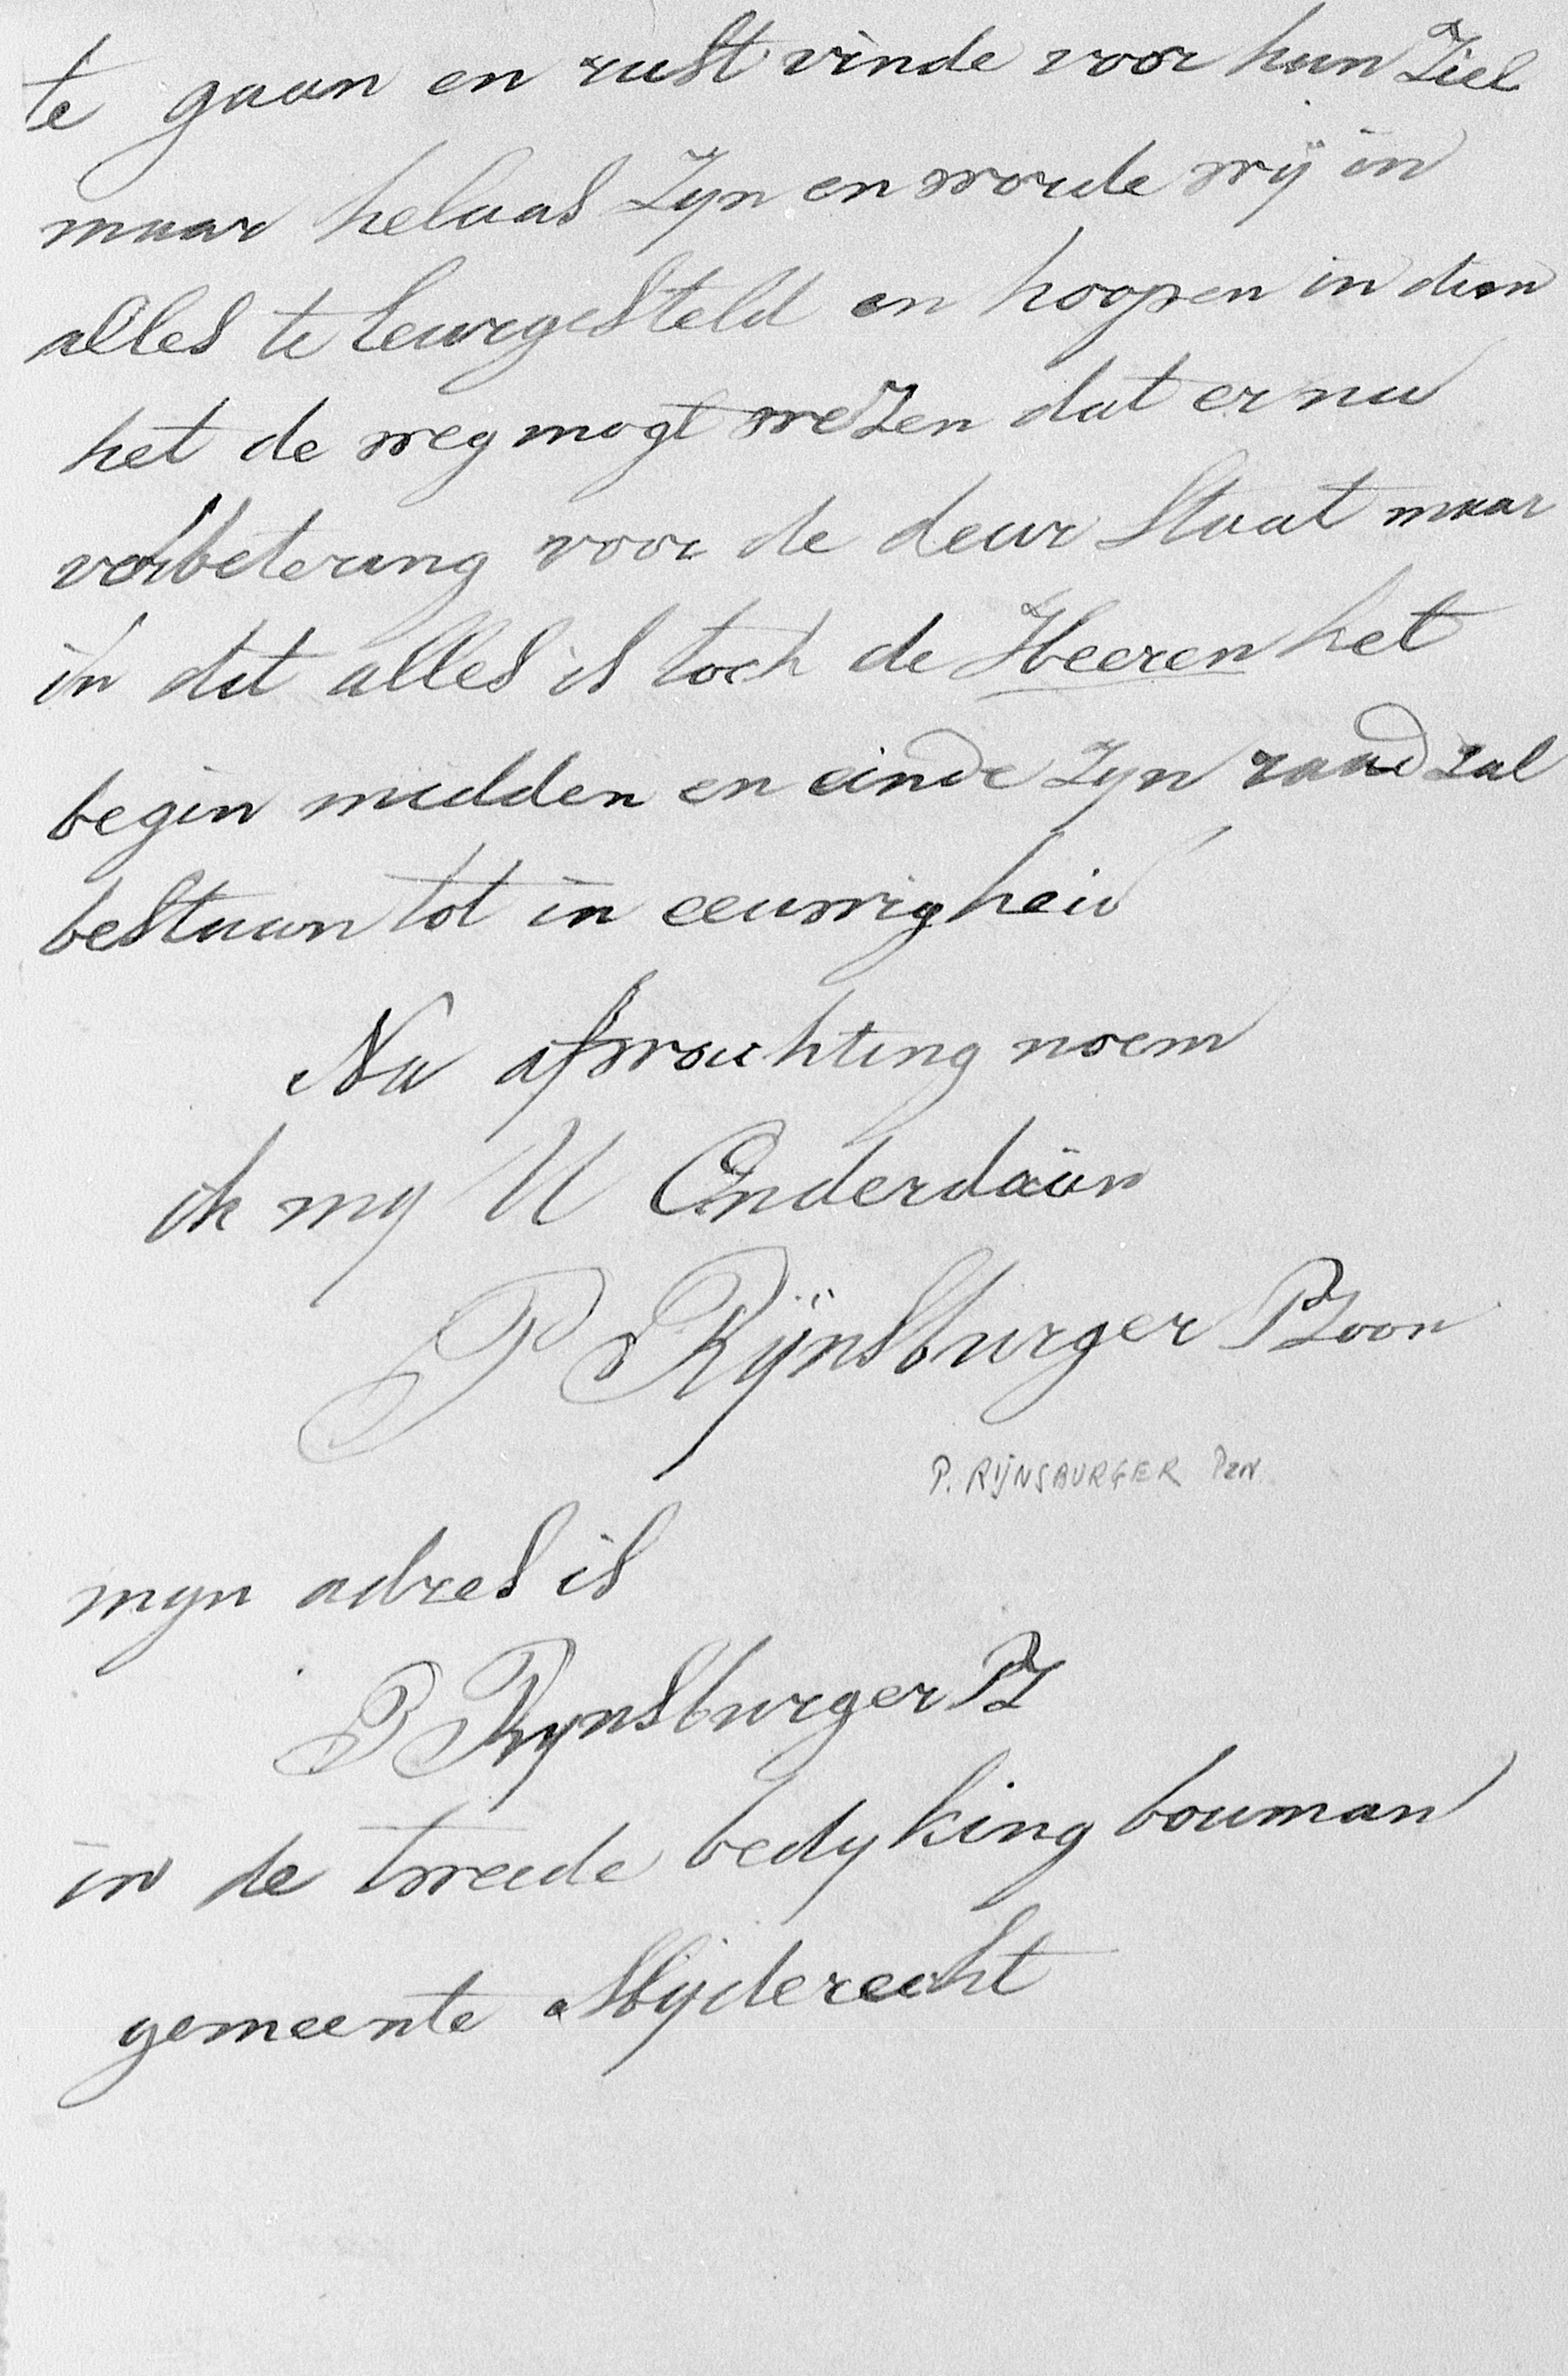 te gaan en rust vinde voor hun Ziel
maar helaas Zyn en worde wij in
alles te leurgesteld en hoopen in dien
het de weg mogt weZen dat er nu
verbetering voor de deur Staat maar
in dit alles is toch de Heeren het
begin midden en einde Zyn raad zal
bestaan tot in eeuwigheid
Na afwachting noem
ik my U Onderdaan
P Rijnsburger PZoon
P. RIJNSBURGER PZN
myn adres is
P Rynsburger PZ
in de tweede bedyking bouman
gemeente Mijderecht